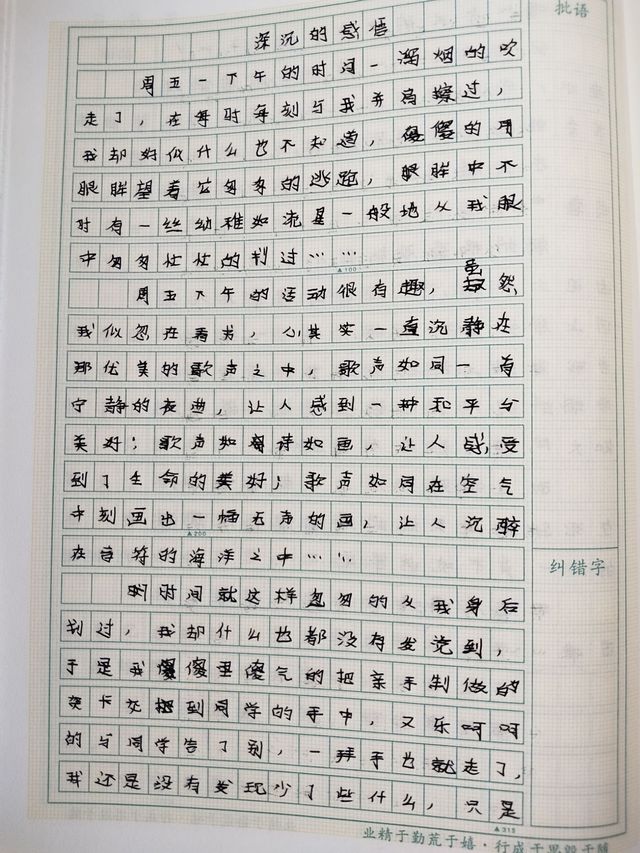 批语
深沉的感悟
周五一下午的时间一溜烟的吹
走了，在每时每刻与我并肩擦过，
我却好似什么也不知道，傻傻的用
眼眸望着它匆匆的逃跑，眼眸中不
时有一丝幼稚如流星一般地从我眼
中匆匆忙忙的划过……
▲100
周五下午的活动很有趣，虽然
我似忽在看书，心其实一直沉静在
那优美的歌声之中，歌声如同一首
宁静的夜曲，让人感到一种和平与
美好；歌声如诗如画，让人感受
到了生命的美好；歌声如同在空气
中刻画出一幅无声的画，让人沉醉
▲200
在音符的海洋之中……
纠错字
时间就这样忽匆的从我身后
划过，我却什么也都没有发觉到，
于是我傻里傻气的把亲手制做的
贺卡交到同学的手中，又乐呵呵
的与同学告了别，一拜手也就走了，
我还是没有发现少了些什么，只是
▲315
业精于勤荒于嬉·行成于思毁于随